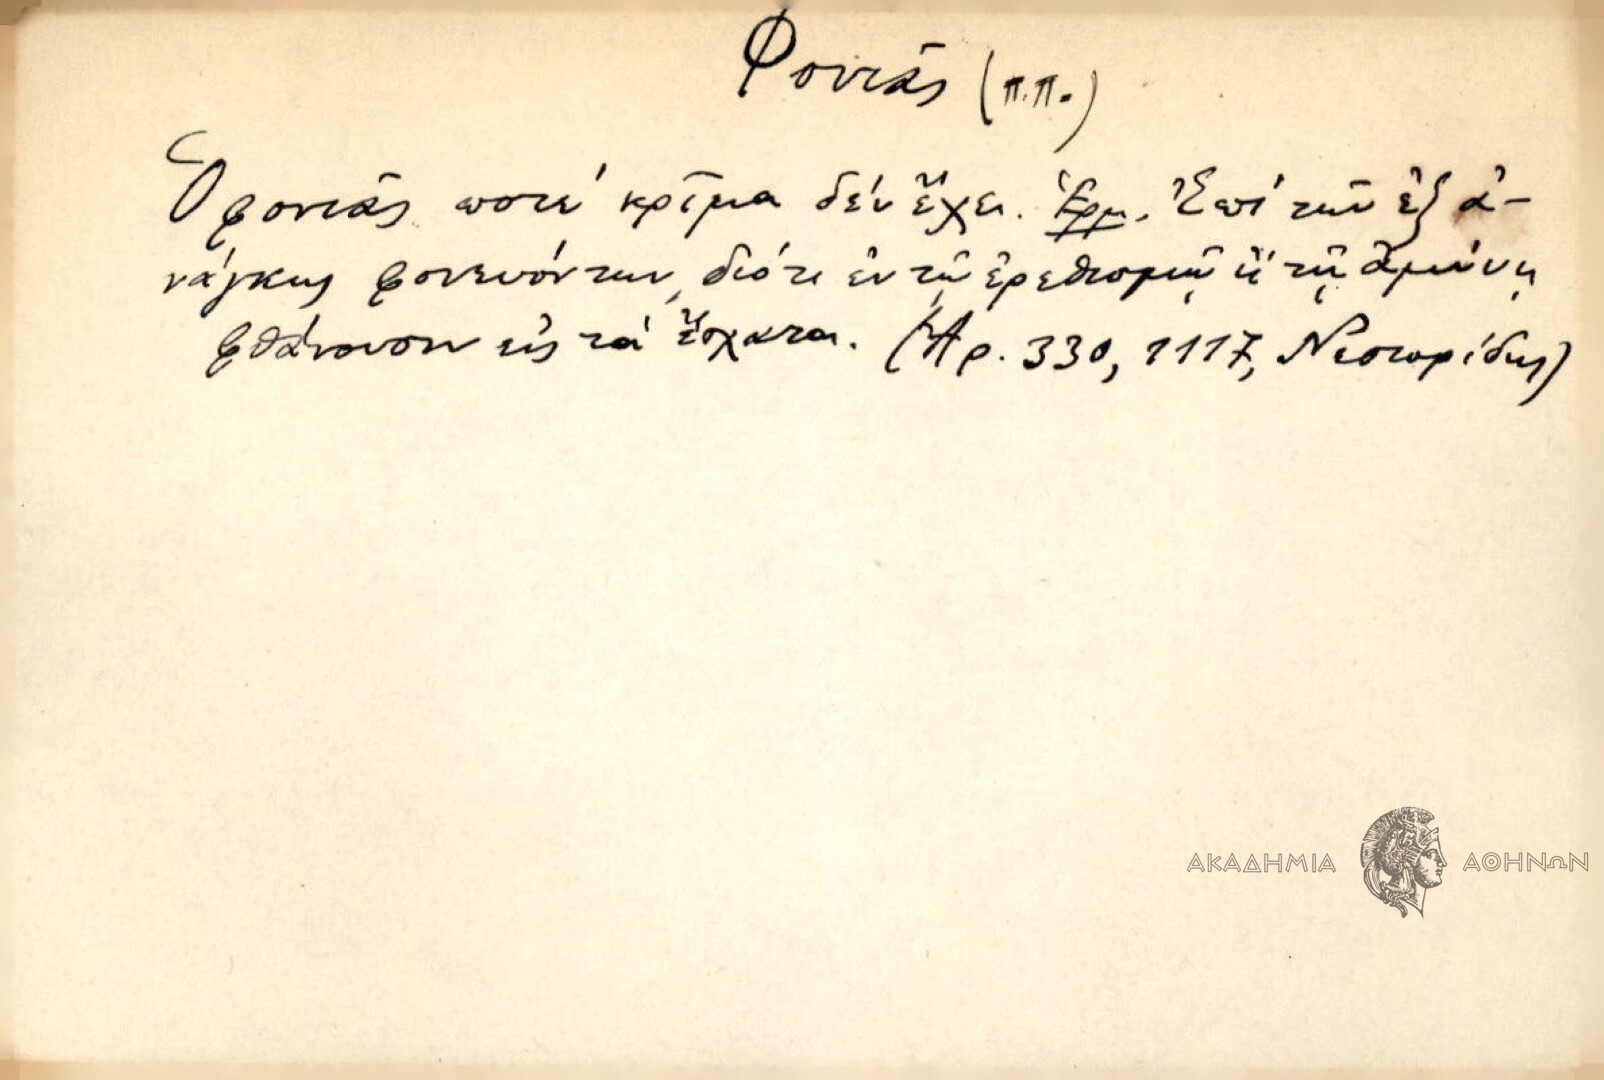 Φονιᾶς (π.π.)
Ὁ φονιᾶς ποτέ κρῖμα δέν ἔχει. Ἑρμ. Ἐπί τῶν ἐξ ἀ-
νάγκης φονευόντων, διότι ἐν τῷ ἐρεθισμῷ ἢ τῇ ἀμύνῃ
φθάνουσιν εἰς τά ἔσχατα. (Ἀρ. 330, 1117, Νεστορίδης)
ΑΚΑΔΗΜΙΑ ΑΘΗΝΩΝ